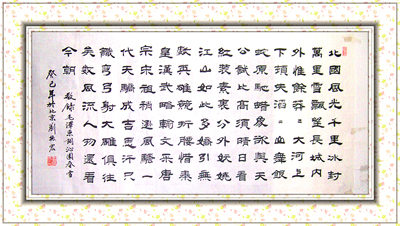 北國風光千里冰封
萬里雪飄望長城內
外惟餘莽〻大河上
下頓失滔〻山舞銀
蛇原馳蠟象欲與天
公試比高須晴日看
紅裝素裹分外妖嬈
江山如此多嬌引無
數英雄競折腰惜秦
皇漢武略輸文采唐
宗宋祖稍遜風騷一
代天驕成吉思汗只
識彎弓射大雕俱往
矣數風流人物還看
今朝 敬錄毛澤東詞沁園春雪
癸巳年於北京劉